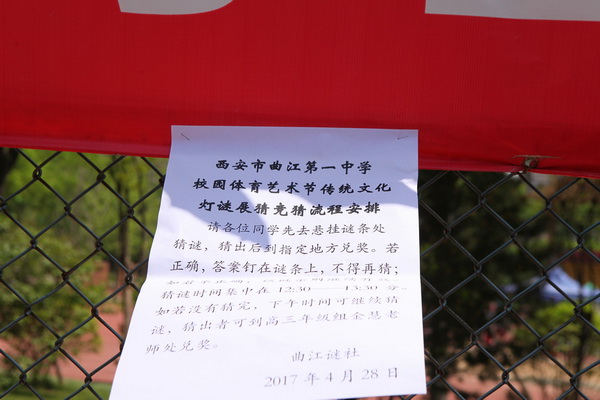 西安市曲江第一中学
校园体育艺术节传统文化
灯谜展猜竞猜流程安排
请各位同学先去悬挂谜条处
猜谜，猜出后到指定地方兑奖。若
正确，答案钉在谜条上，不得再猜；
猜谜时间集中在 12:30——13:30 分。
如若没有猜完，下午时间可继续猜
谜，猜出者可到高三年级组全恳老
师处兑奖。
曲江谜社
2017 年 4 月 28 日